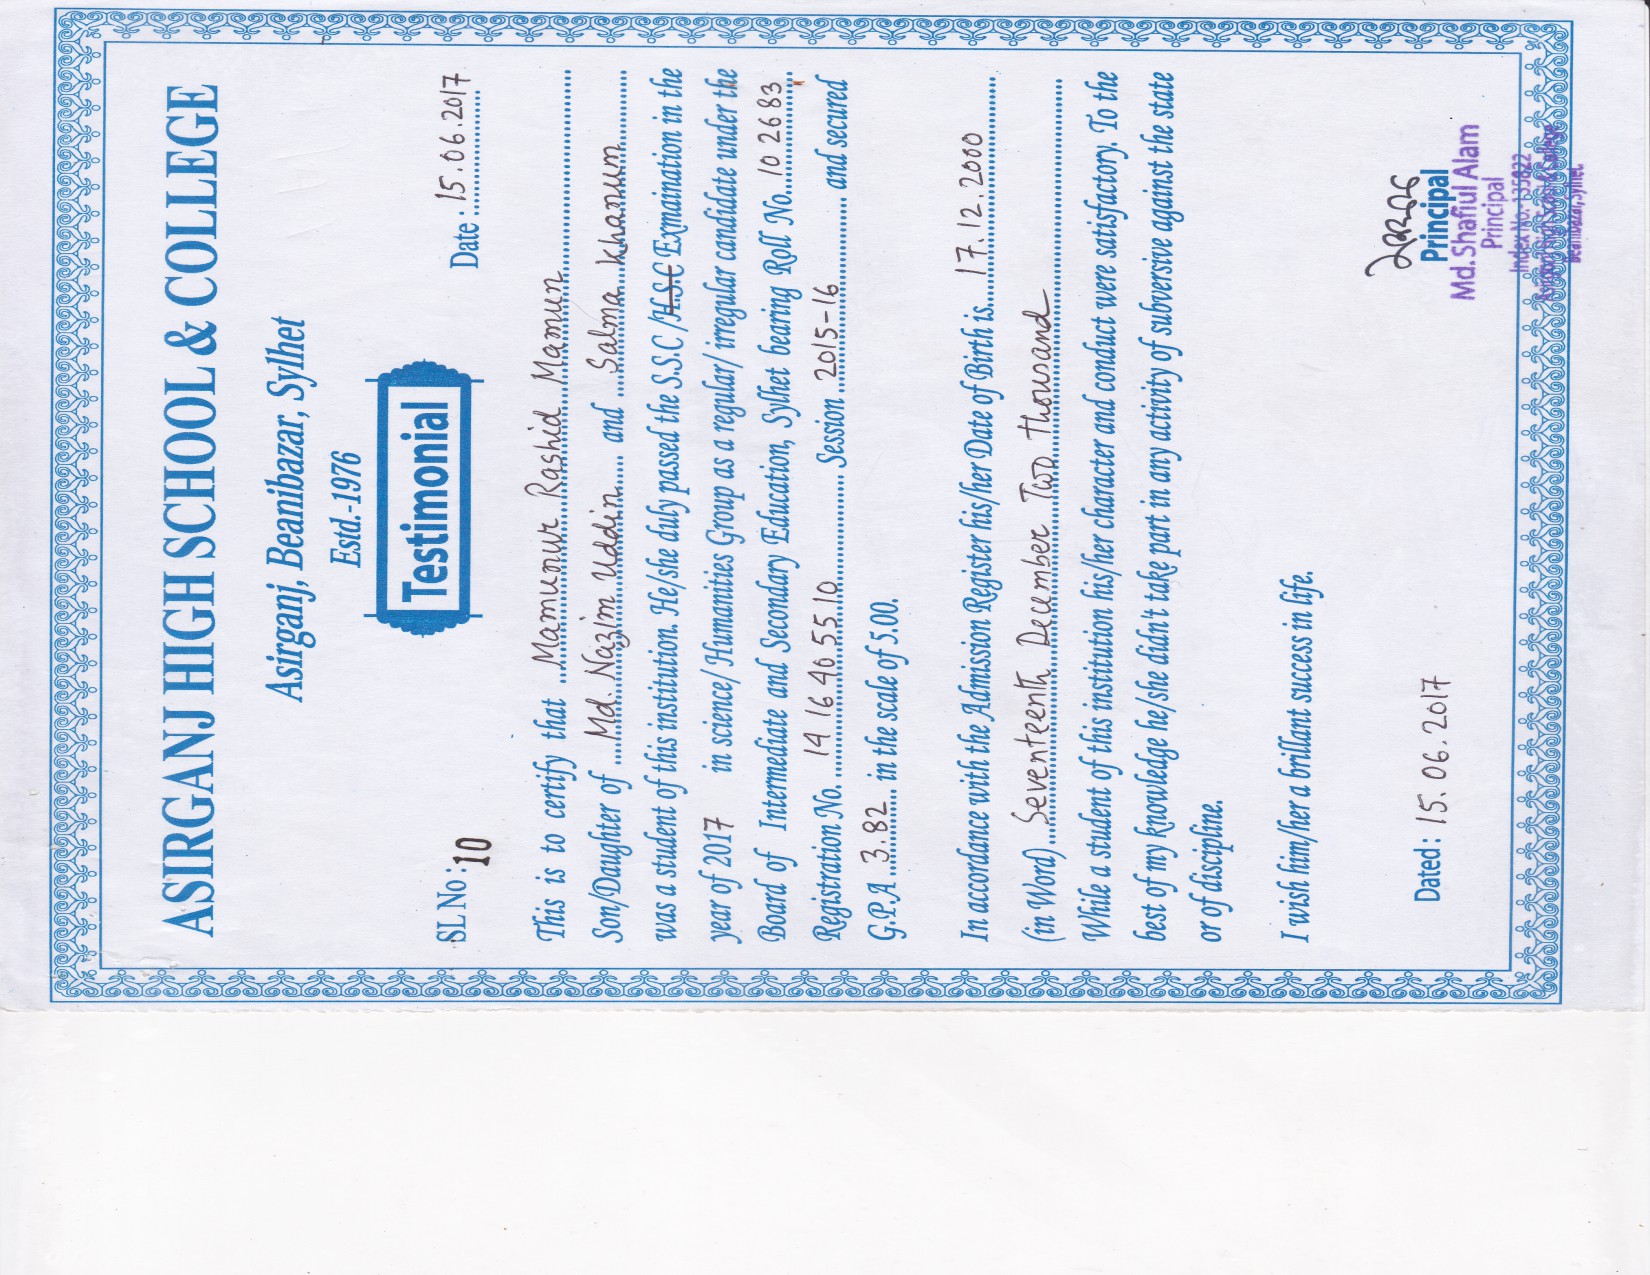 ASIRGANJ HIGH SCHOOL & COLLEGE
Asirganj, Beanibazar, Sylhet
Estd.-1976
Testimonial
SL No : 10 Date : 15.06.2017
This is to certify that Mamunur Rashid Mamun
Son/Daughter of Md. Nazim Uddin and Salma Khanum
was a student of this institution. He/she duly passed the S.S.C /H.S.C Exmaination in the
year of 2017 in science/ Humanities Group as a regular/ irregular candidate under the
Board of Intermediate and Secondary Education, Sylhet bearing Roll No. 10 26 83
Registration No. 14 16 40 55 10 Session 2015-16 and secured
G.P.A 3.82 in the scale of 5.00.
In accordance with the Admission Register his/her Date of Birth is 17.12.2000
(in Word) Seventeenth December Two thousand
While a student of this institution his/her character and conduct were satisfactory. To the
best of my knowledge he/she didn't take part in any activity of subversive against the state
or of discipline.
I wish him/her a brillant success in life.
Dated : 15.06.2017
Principal
Md. Shafiul Alam
Principal
Index No. 135822
Beanibazar, Sylhet.